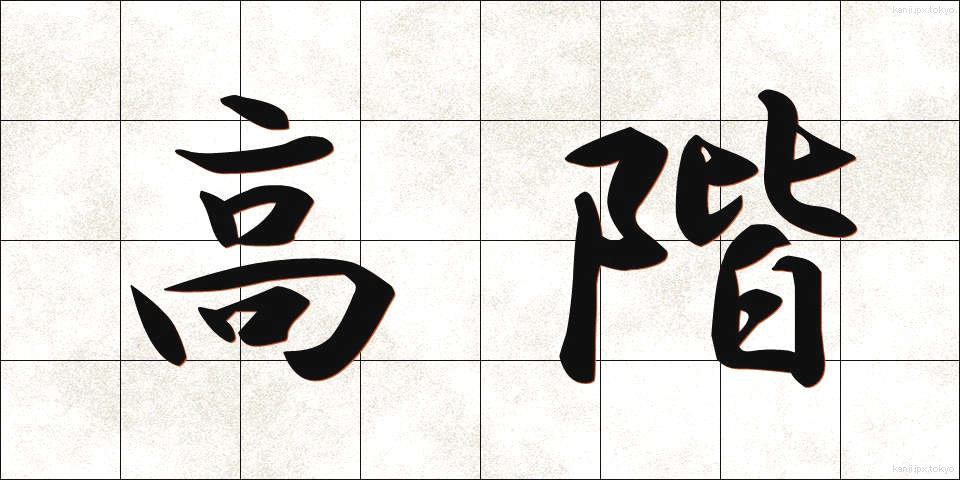 kanji.jpx.tokyo
高階
kanji.jpx.tokyo